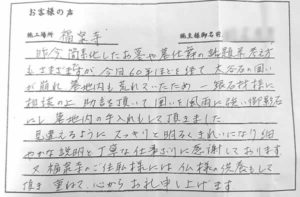 お客様の声
施工場所 福泉寺 施主様御名前
昨今簡素化したお墓や墓仕舞の話題も考え方
もさまざまですが 今日60年ほどを経て 大谷石の囲い
が崩れ 墓地内も荒れていたため 一銀石材様に
相談の上 助言を頂いて 囲いを風雨に強い御影石
にし 墓地内の手入れもして頂きました
見違えるように スッキリと明るくきれいになり 細
やかな説明と丁寧な仕事ぶりに感謝しております
又 福泉寺のご住職様には 仏様の供養もして
頂き 重ねて心からお礼申し上げます